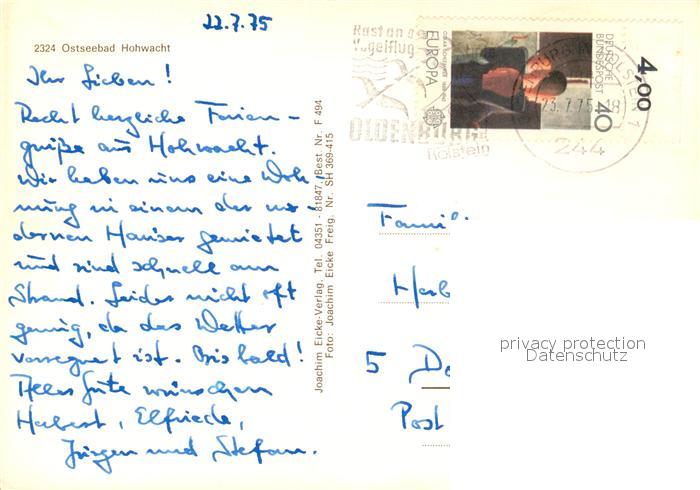 22.7.75
2324 Ostseebad Hohwacht
Ihr Lieben!
Recht herzliche Ferien-
grüße aus Hohwacht.
Wir haben uns eine Woh-
nung in einem der mo-
dernen Häuser gemietet
und sind schnell am
Strand. Leider nicht oft
genug, da das Wetter
verregnet ist. Bis bald!
Alles Gute wünschen
Herbert, Elfriede,
Jürgen und Stefan.
Joachim Eicke-Verlag, Tel. 04351 - 81847, Best. Nr. F 494
Foto: Joachim Eicke Freig. Nr. SH 369-415
Rast an der
Vogelflug
OLDENBURG
Holstein
EUROPA
DEUTSCHE
BUNDESPOST
40
4,00
23.7.75-18
1
244
Famil
Herb
5
Post
privacy protection
Datenschutz